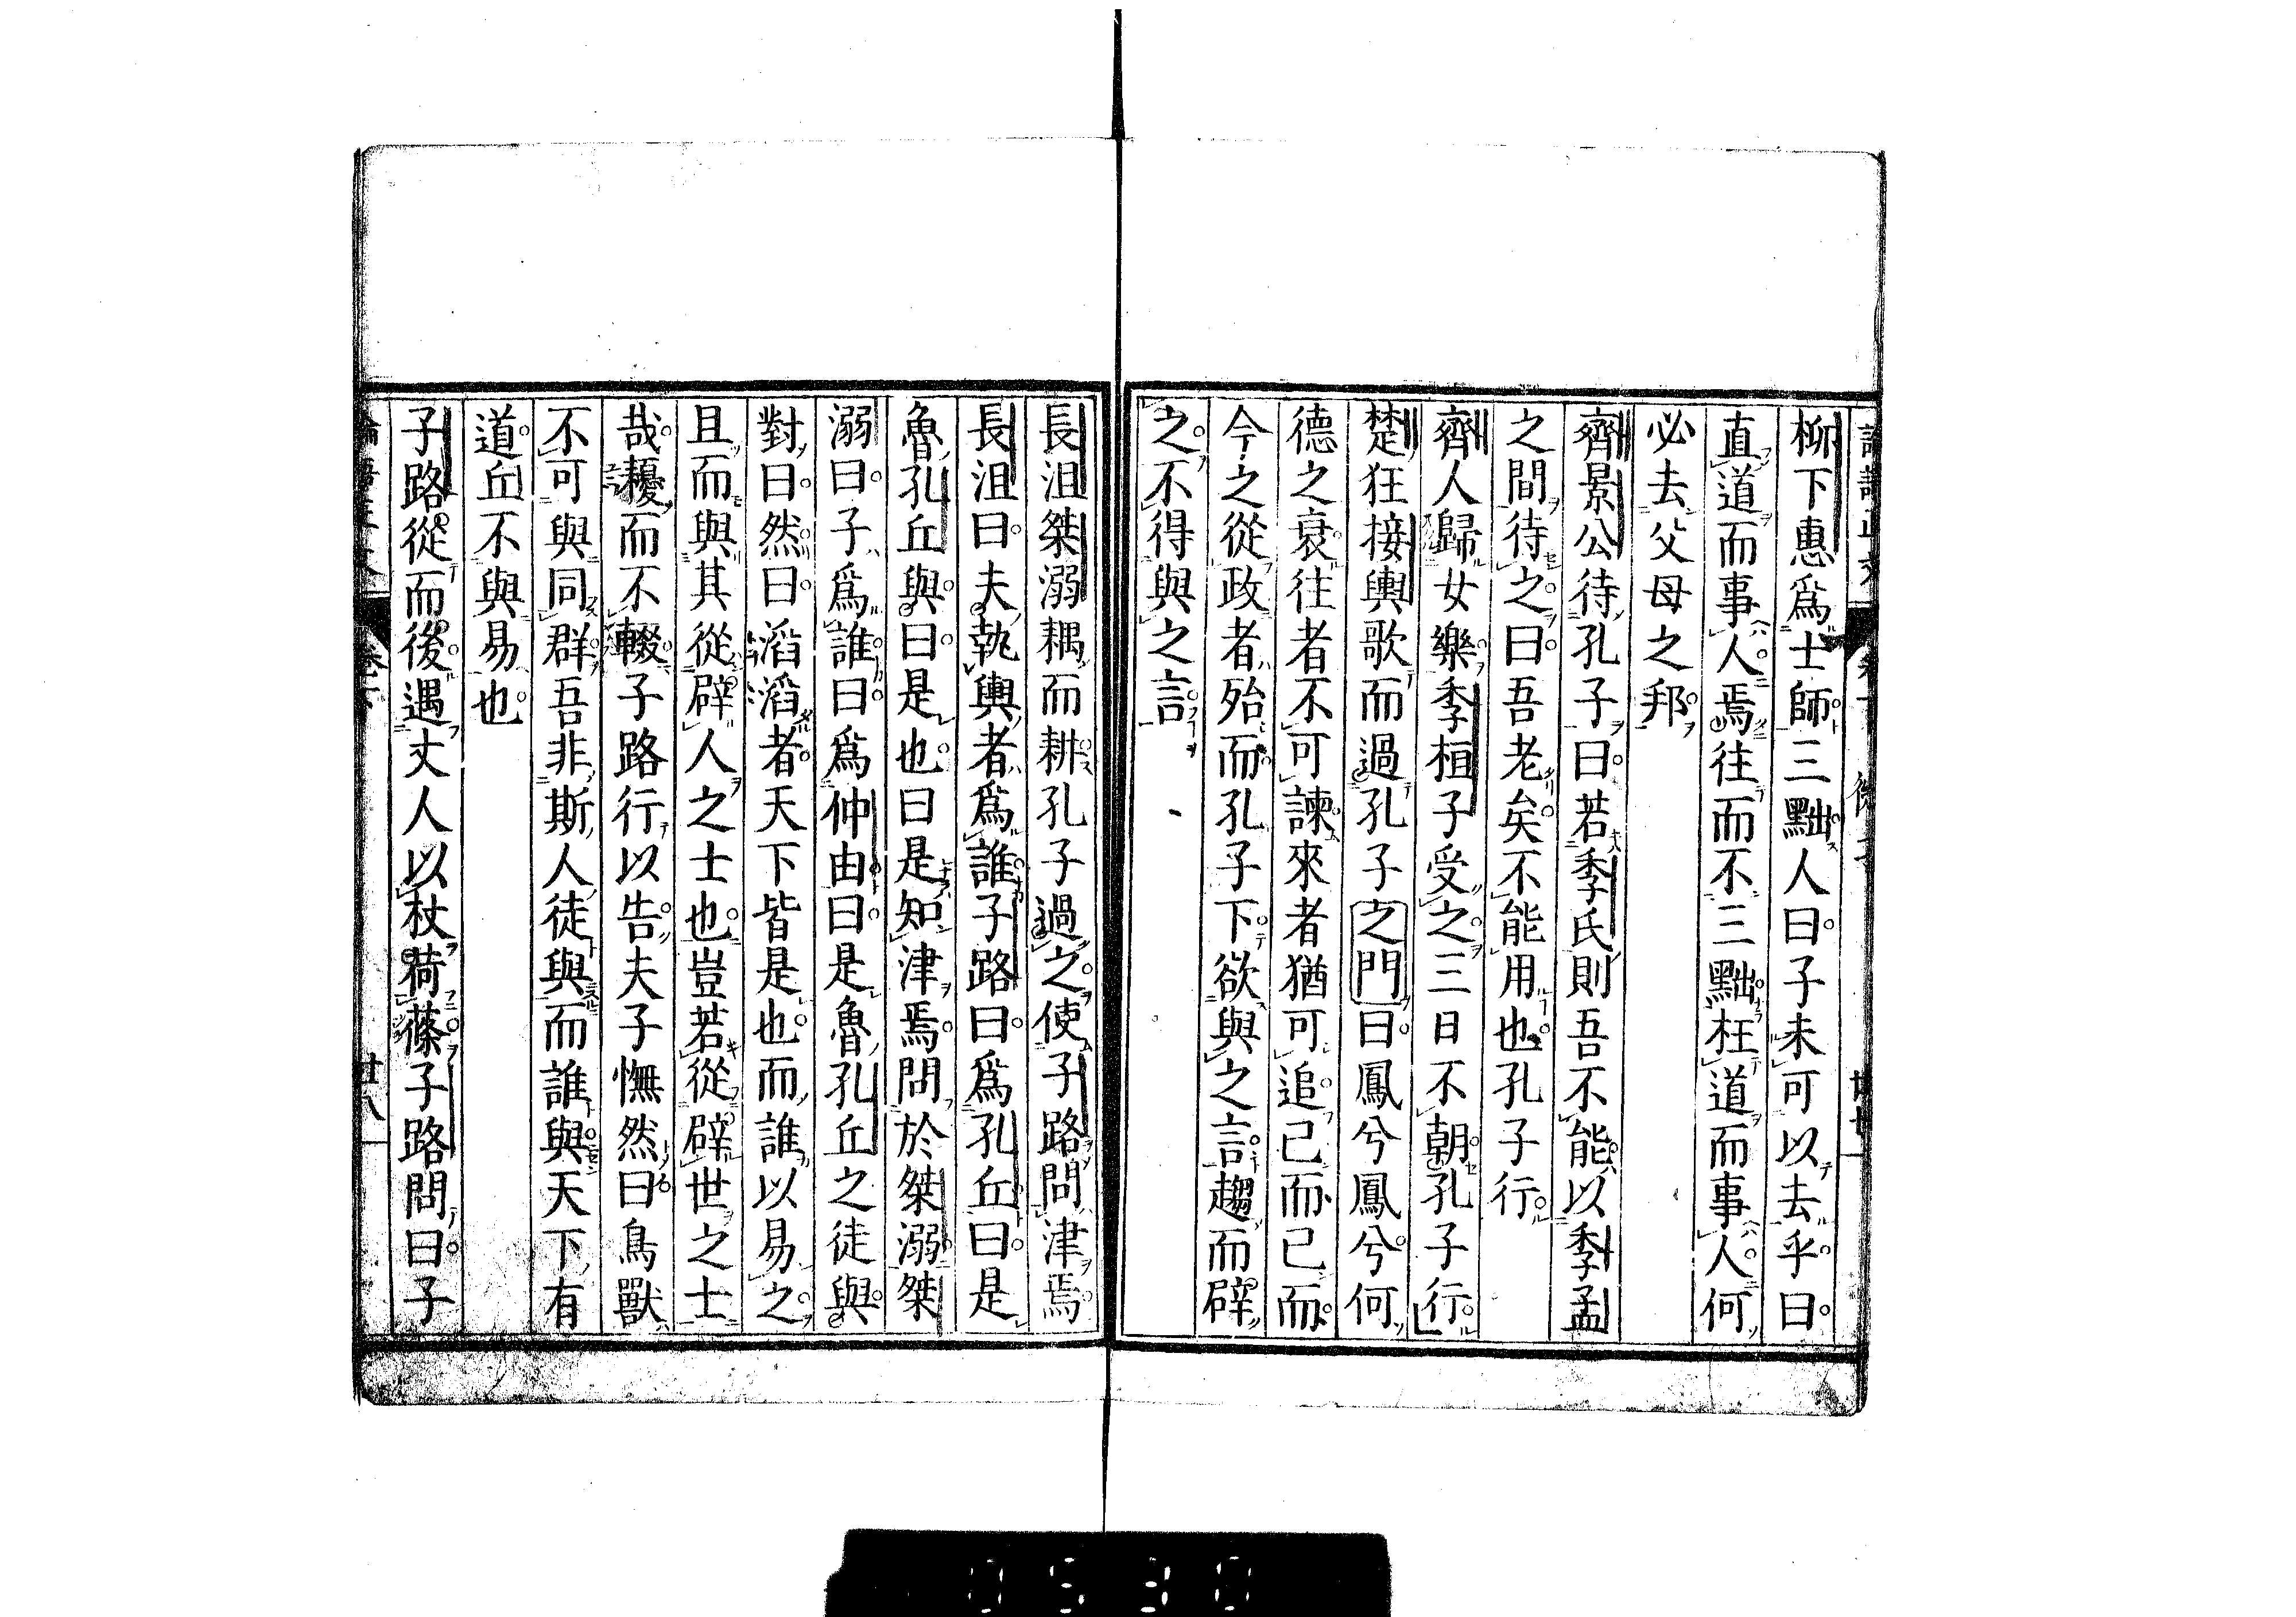 柳下惠爲士師三黜人曰子未可以去乎曰
直道而事人焉往而不三黜枉道而事人何
必去父母之邦
齊景公待孔子曰若季氏則吾不能以季孟
之間待之曰吾老矣不能用也孔子行
齊人歸女樂季桓子受之三日不朝孔子行
楚狂接輿歌而過孔子之門曰鳳兮鳳兮何
德之衰往者不可諫來者猶可追已而已而
今之從政者殆而孔子下欲與之言趨而辟
之不得與之言
長沮桀溺耦而耕孔子過之使子路問津焉
長沮曰夫執輿者爲誰子路曰爲孔丘曰是
魯孔丘與曰是也曰是知津焉問於桀溺桀
溺曰子爲誰曰爲仲由曰是魯孔丘之徒與
對曰然曰滔滔者天下皆是也而誰以易之
且而與其從辟人之士也豈若從辟世之士
哉耰而不輟子路行以告夫子憮然曰鳥獸
不可與同群吾非斯人徒與而誰與天下有
道丘不與易也
子路從而後遇丈人以杖荷蓧子路問曰子
廿八
0530